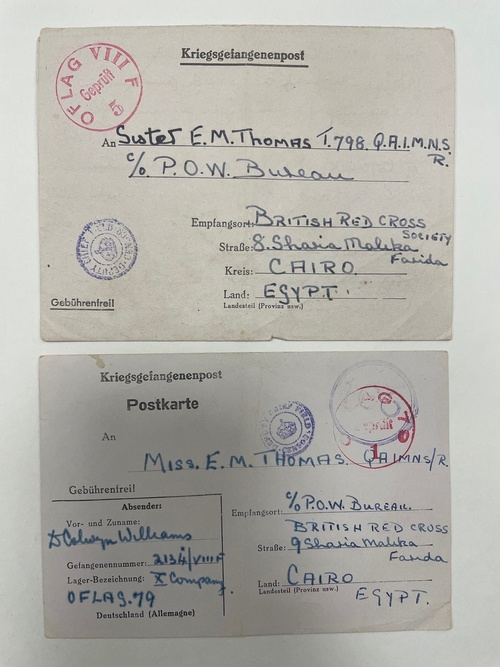 Kriegsgefangenenpost
OFLAG VIII F
Geprüft
5
An Sister E. M. Thomas T. 798. Q.A.I.M.N.S.
R.
c/o P.O.W. Bureau
Empfangsort: British Red Cross
Society
Straße: 8. Sharia Malika
Farida
Kreis: Cairo.
Land: Egypt.
Landesteil (Provinz usw.)
Gebührenfrei!
Kriegsgefangenenpost
Postkarte
An
Geprüft
1
Miss. E. M. Thomas. QAIMNS/R.
Gebührenfrei!
Absender:
Vor- und Zuname:
D Colwyn Williams
Gefangenennummer: 2134/VIIIF
Lager-Bezeichnung: X Company
OFLAG. 79
Deutschland (Allemagne)
Empfangsort: c/o P.O.W. Bureau.
British Red Cross
Straße: 9 Sharia Malika
Farida
Land: Cairo
Landesteil (Provinz usw.)
Egypt.